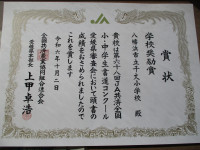 賞状
学校奨励賞
八幡浜市立千丈小学校 殿
貴校は第六十八回JA共済全国
小・中学生書道コンクール
愛媛県審査会において頭書の
成績をおさめられましたので
これを賞します
令和六年十月二日
全国共済農業協同組合連合会
愛媛県本部長
上甲卓浩